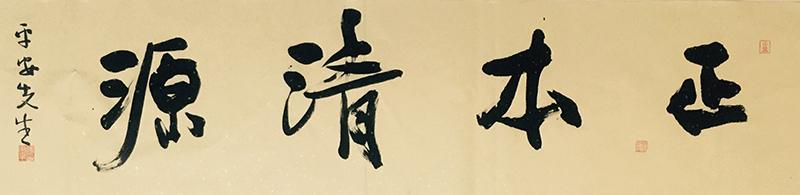 正本清源
平安先生